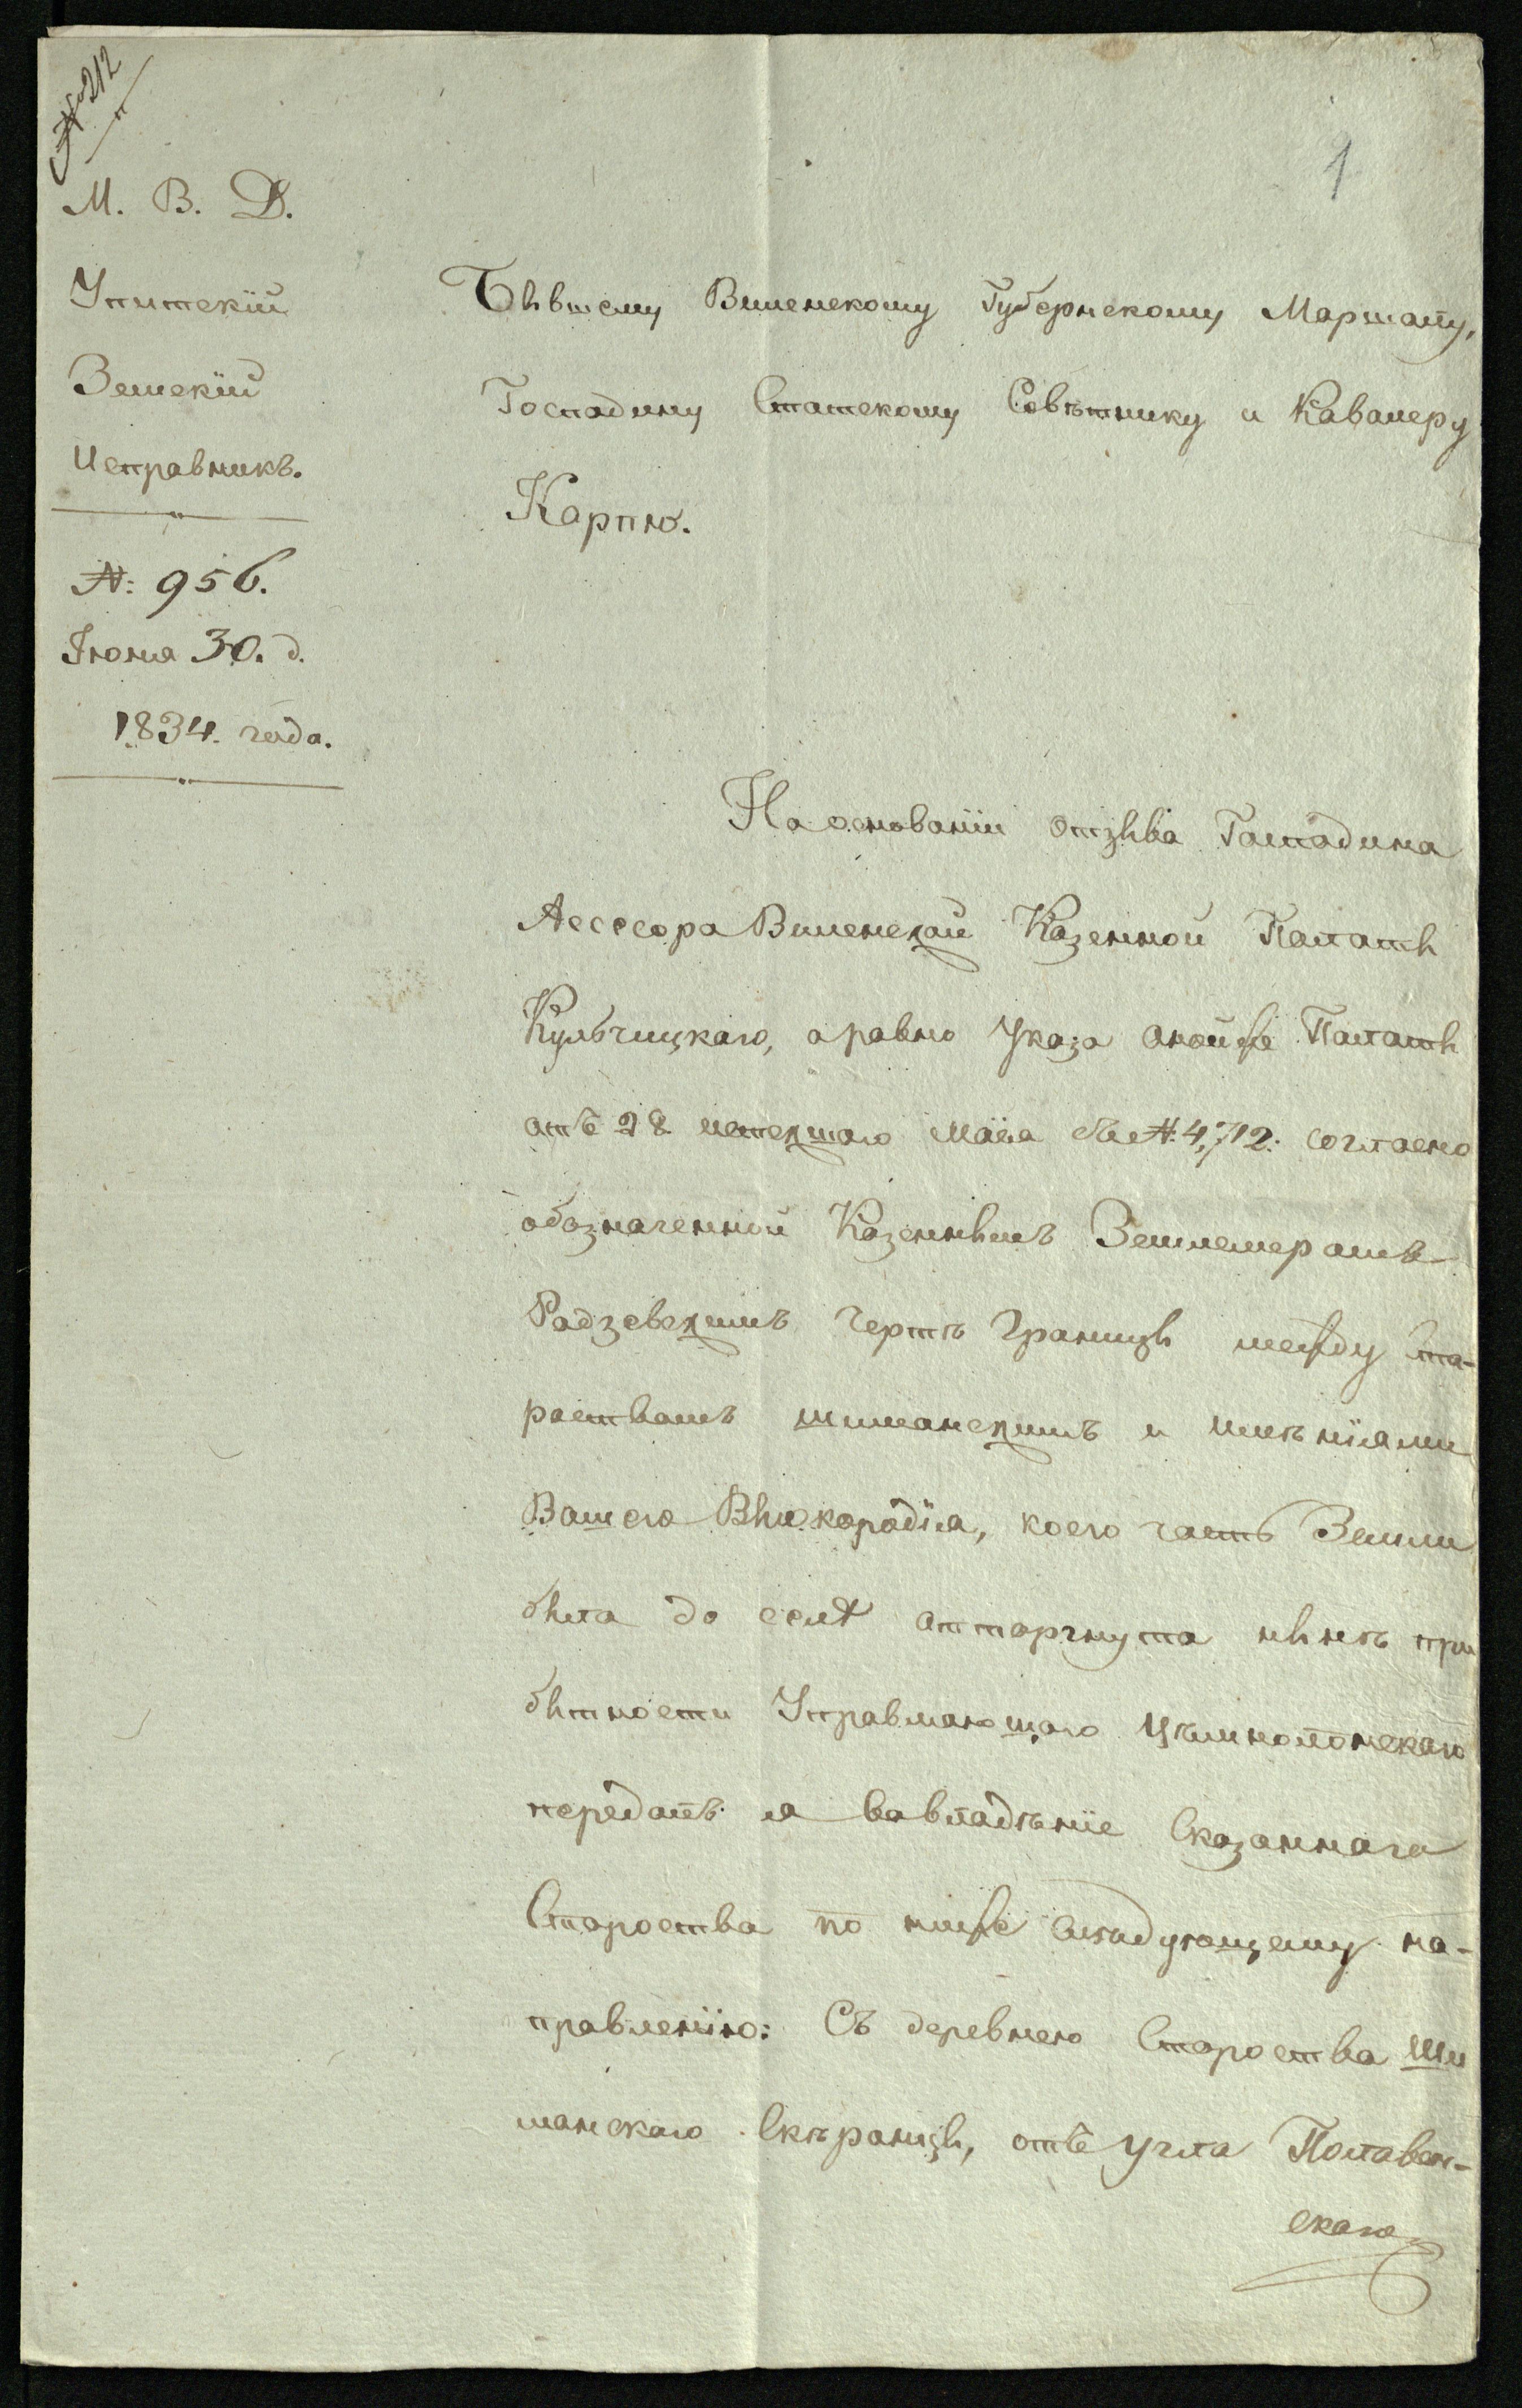 № 212
1
М. В. Д.
Упитскій
Земскій
Исправникъ.
№: 956.
Іюня 30. д.
1834. года.
Бывшему Виленскому Губернскому Маршалу,
Господину Статскому Совѣтнику и Кавалеру
Карпю.
На основаніи отзыва Господина
Асессора Виленской Казенной Палаты
Кульчицкаго, а равно Указа оной же Палаты
отъ 28 истекшаго Маія съ №. 4,712. согласно
обозначенной Казеннымъ Землемеромъ
Радзевскимъ Чертѣ Границы между Ста-
роствомъ Шиманскимъ и имѣніями
Вашего Высокородія, коего часть Земли
была до селѣ отторгнута нынѣ при
бытности Управляющаго
передалъ я во владѣніе Сказаннаго
Староства по ниже слѣдующему на-
правленію: Съ деревнею Староства Ши
манскаго отъ угла
скаго